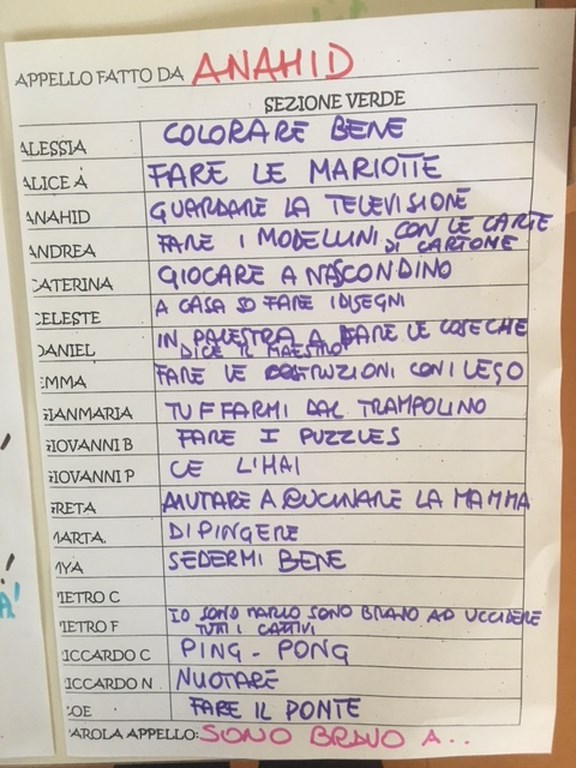 APPELLO FATTO DA ANAHID
SEZIONE VERDE
ALESSIA COLORARE BENE
ALICE A FARE LE MARIOTTE
ANAHID GUARDARE LA TELEVISIONE
ANDREA FARE I MODELLINI CON LE CARTE
DI CARTONE
CATERINA GIOCARE A NASCONDINO
CELESTE A CASA SO FARE I DISEGNI
DANIEL IN PALESTRA A FARE LE COSE CHE
DICE IL MAESTRO
EMMA FARE LE COSTRUZIONI CON I LEGO
GIANMARIA TUFFARMI DAL TRAMPOLINO
GIOVANNI B FARE I PUZZLES
GIOVANNI P CE L'HAI
GRETA AIUTARE A CUCINARE LA MAMMA
MARTA. DIPINGERE
MYA SEDERMI BENE
PIETRO C
PIETRO F IO SONO MARIO SONO BRAVO AD UCCIDERE
TUTTI I CATTIVI
RICCARDO C PING-PONG
RICCARDO N NUOTARE
ZOE FARE IL PONTE
PAROLA APPELLO: SONO BRAVO A...